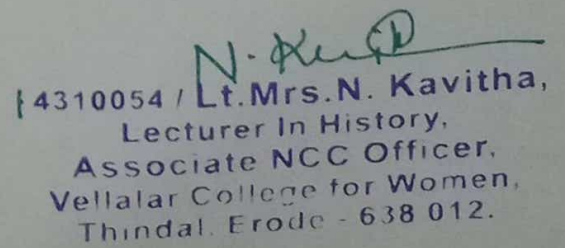 N. Kavitha
14310054 / Lt.Mrs.N. Kavitha,
Lecturer In History,
Associate NCC Officer,
Vellalar College for Women,
Thindal. Erode - 638 012.